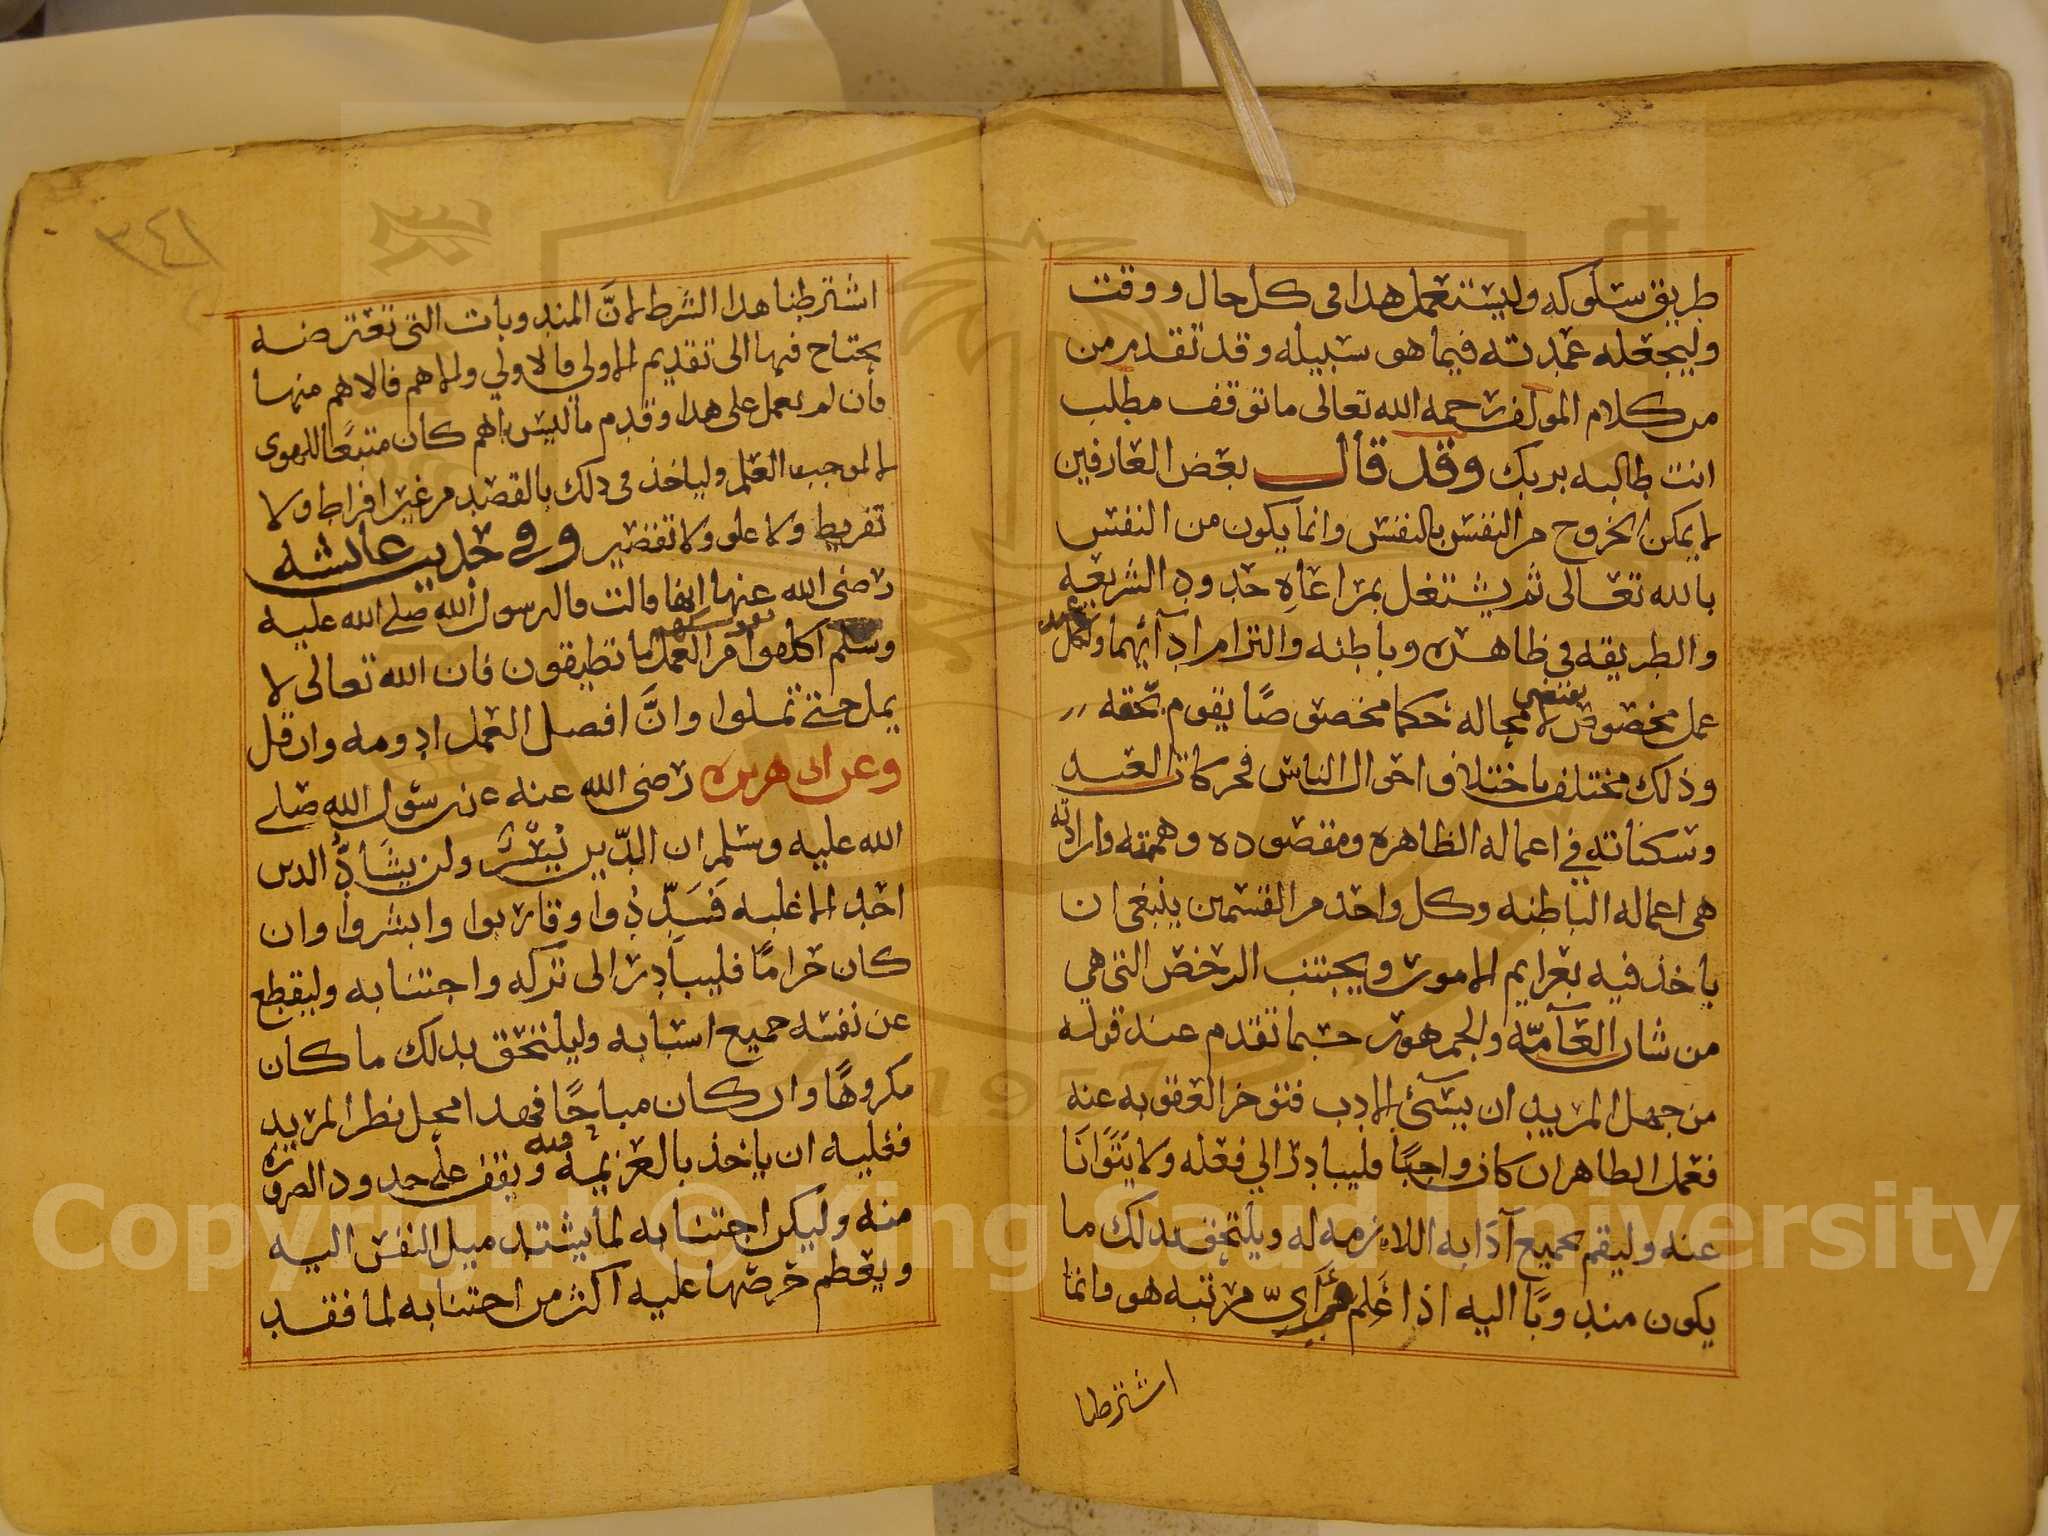 طريق سلوكه وليستعمل هذا في كل حال ووقت
وليجعله عمدته فيما هو سبيله وقد تقدم من
من كلام المولف رحمه الله تعالى ما توقف مطلب
انت طالبه بربك وقد قال بعض العارفين
لا يمكن الخروج من النفس بالنفس وانما يكون من النفس
بالله تعالى ثم يشتغل بمراعاه حدود الشريعه
والطريقه في ظاهره وباطنه والتزام ادآبهما ولكل
عمل مخصوص يقتضي لا محاله حكما مخصوصًا يقوم بحقه
وذلك مختلف باختلاف احوال الناس فحركات العبد
وسكناته في اعماله الظاهره ومقصوده وهمته وارادته
هي اعماله الباطنه وكل واحد من القسمين ينبغي ان
ياخذ فيه بعزايم الامور ويجتنب الرخص التي هي
من شان العآمّه والجمهور حسبما تقدم عند قوله
من جهل المريد ان يسئ الادب فتوخر العقوبه عنه
فعمل الظاهر ان كان واجبًا فليبادر الي فعله ولا يتوانا
عنه وليقم بجميع آدابه اللازمه له ويلتحق بذلك ما
يكون مندوبًا اليه اذا علم من ايّ مرتبه هو وانما
اشترطنا
٣٤١
اشترطنا هذا الشرط لانَّ المندوبات التي تعترضه
يحتاج فيها الى تقديم الاولي فالاولي والاهم فالاهم منها
فان لم يعمل على هذا وقدم ما ليس باهم كان متبعًا للهوى
لا لموجب العلم ولياخذ في ذلك بالقصد من غير افراط ولا
تفريط ولا غلو ولا تقصير وفي حديث عائشه
رضى الله عنها ايضا قالت قال رسول الله صلے الله عليه
وسلم اكلفوا من العمل ما تطيقون فان الله تعالى لا
يمل حتي تملوا وانَّ افضل العمل ادومه وان قل
وعن ابي هريره رضى الله عنه عن رسول الله صلے
الله عليه وسلم ان الدّين يُسْرٌ ولن يشَادَّ الدين
احد الا غلبه فَسَدِّدُوا وقاربوا وابشروا وان
كان حرامًا فليبادر الى تركه واجتنابه وليقطع
عن نفسه جميع اسبابه وليلتحق بذلك ما كان
مكروهًا وان كان مباحًا فهذا محل نظر المريد
فعليه ان ياخذ بالعزيمة فيه ويقف علے حدود الضروره
منه وليكن اجتنابه لما يشتد ميل النفس اليه
ويعظم حرصها عليه اكثر من اجتنابه لما فقد
Copyright © King Saud University
1957